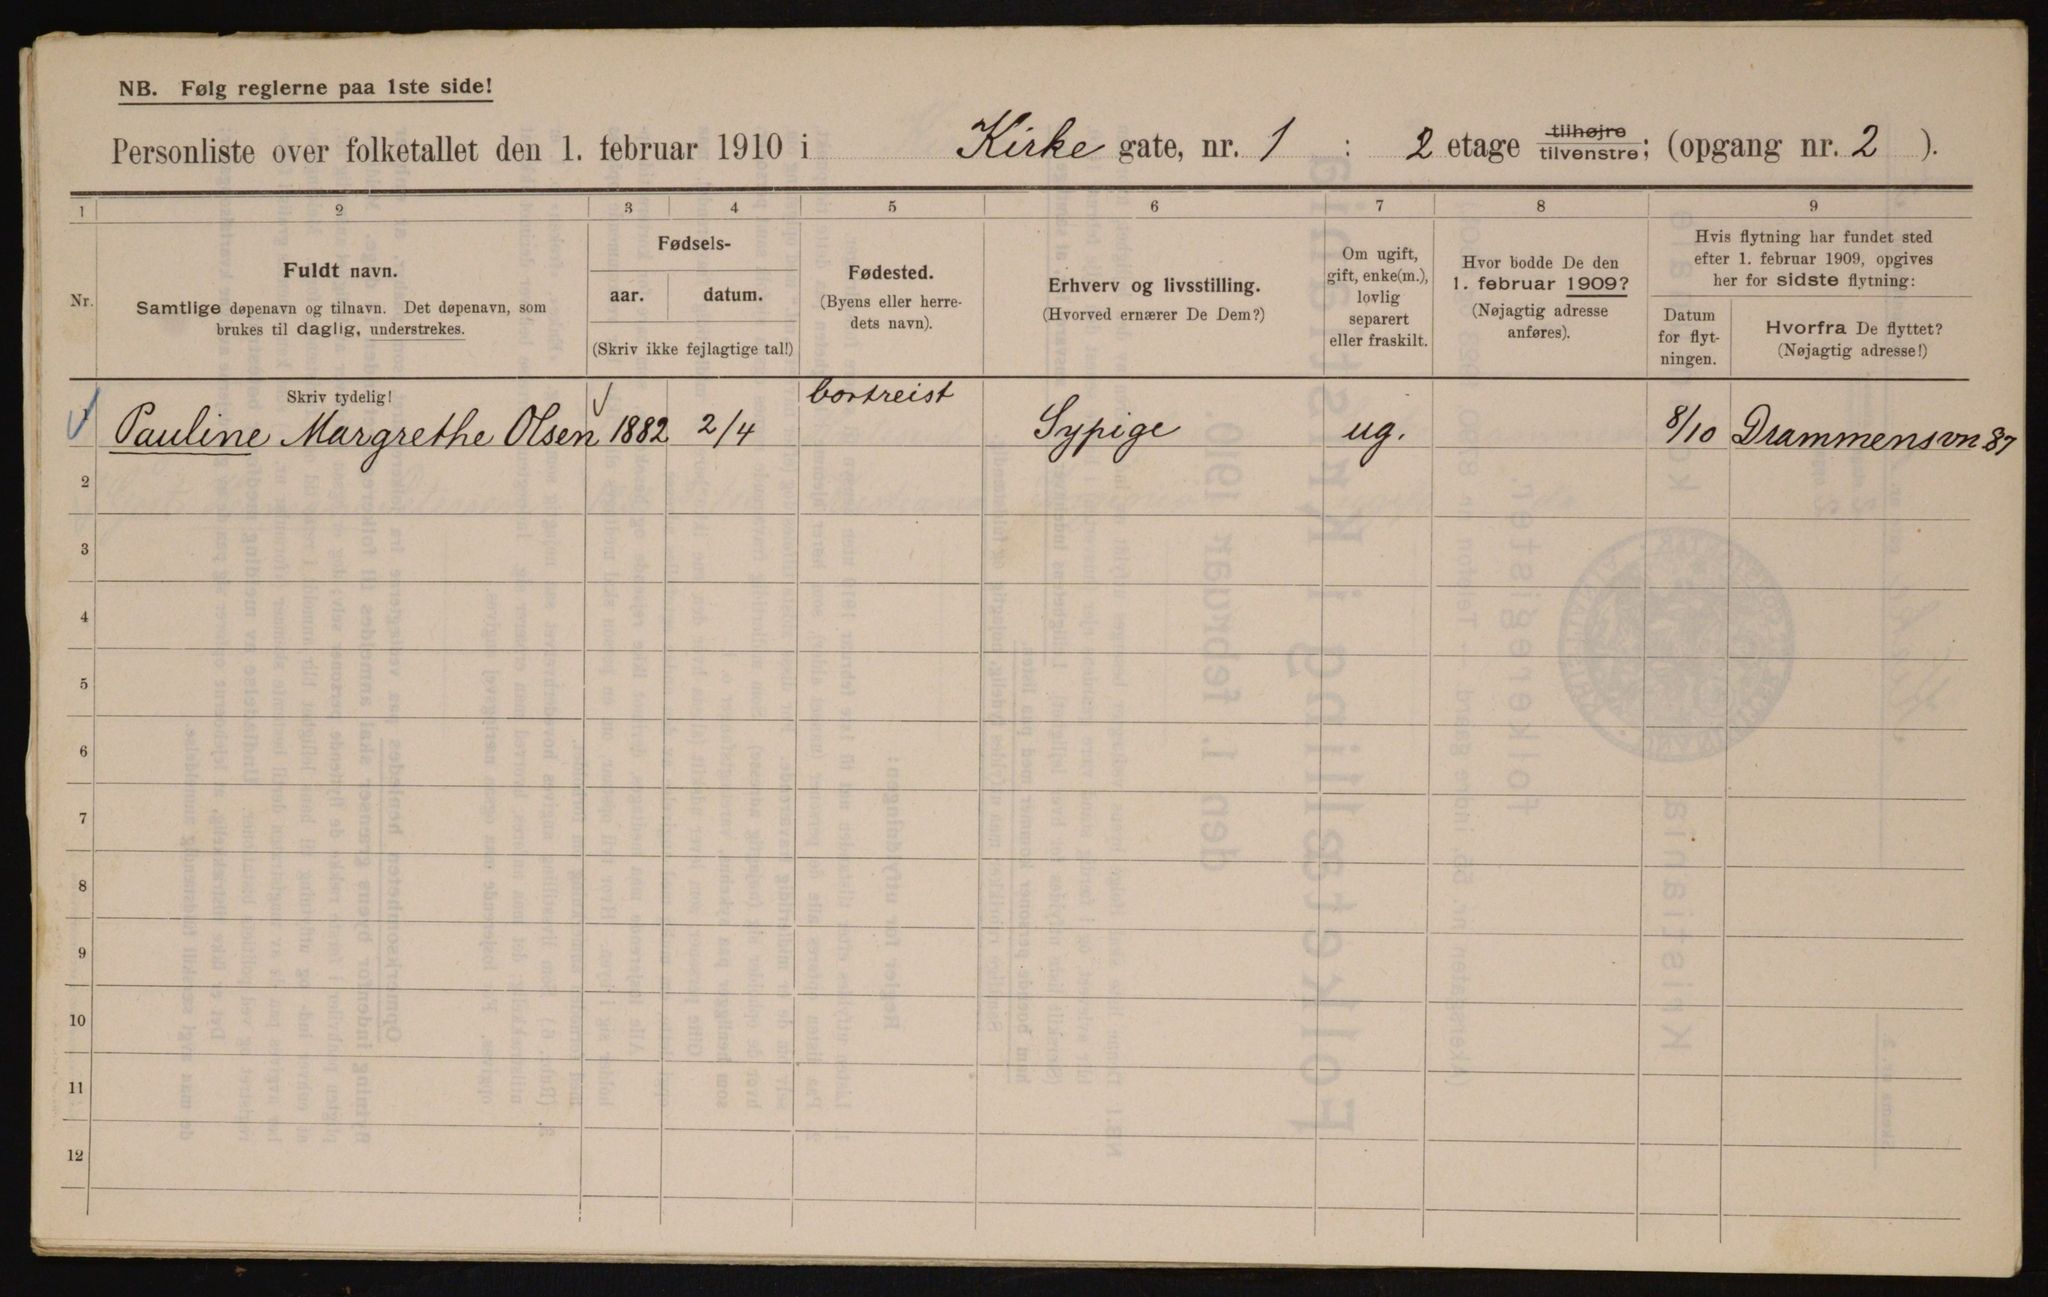 NB. Følg reglerne paa 1ste side!
Personliste over folketallet den 1. februar 1910 i Kirke gate, nr. 1 : 2 etage tilhøjre tilvenstre; (opgang nr. 2 ).
1 2 3 4 5 6 7 8 9
Nr.
Fuldt navn.
Samtlige døpenavn og tilnavn. Det døpenavn, som
brukes til daglig, understrekes.
Fødsels-
aar. datum.
(Skriv ikke fejlagtige tal!)
Fødested.
(Byens eller herre-
dets navn).
Erhverv og livsstilling.
(Hvorved ernærer De Dem?)
Om ugift,
gift, enke(m.),
lovlig
separert
eller fraskilt.
Hvor bodde De den
1. februar 1909?
(Nøjagtig adresse
anføres).
Hvis flytning har fundet sted
efter 1. februar 1909, opgives
her for sidste flytning:
Datum
for flyt-
ningen.
Hvorfra De flyttet?
(Nøjagtig adresse!)
Skriv tydelig!
bortreist
Pauline Margrethe Olsen 1882 2/4 Sypige ug. 8/10 Drammensvn 87
2
3
4
5
6
7
8
9
10
11
12